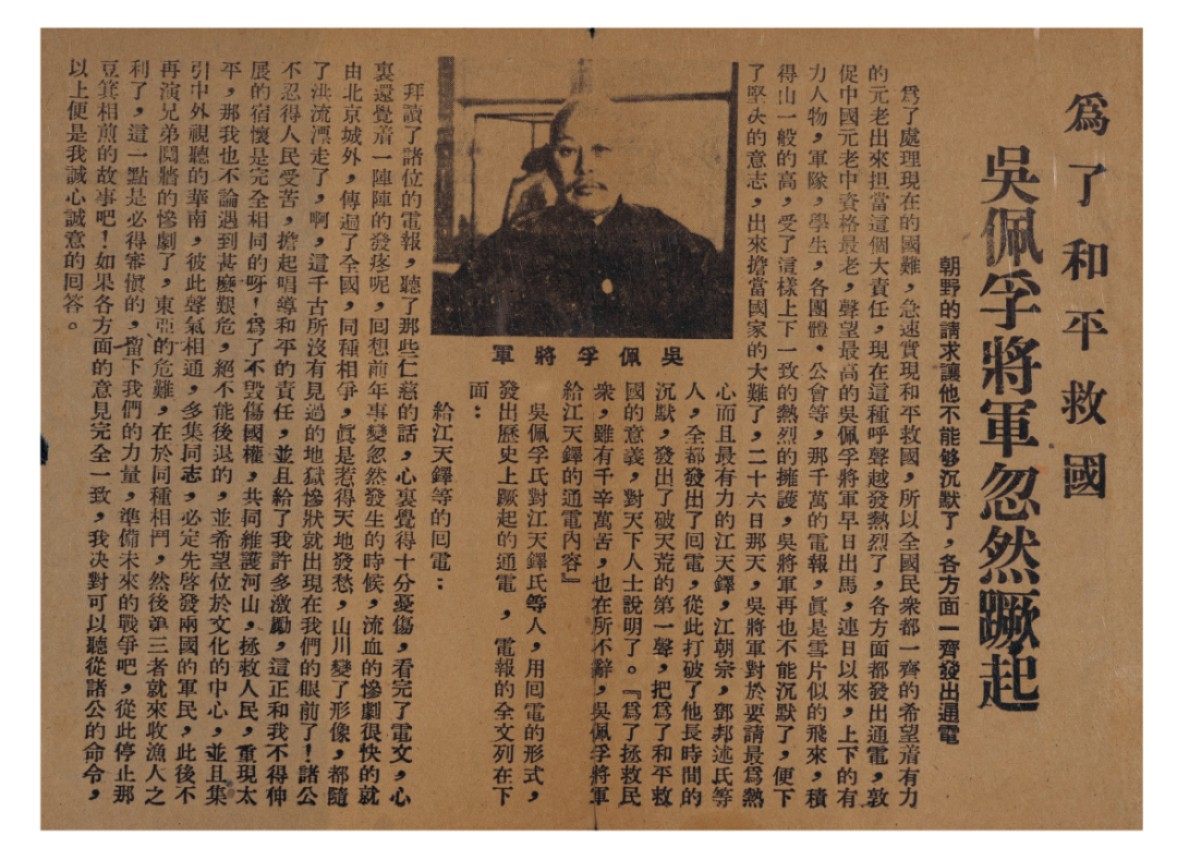 為了和平救國
吳佩孚將軍忽然蹶起
朝野的請求讓他不能够沉默了，各方面一齊發出通電
爲了處理現在的國難，急速實現和平救國，所以全國民衆都一齊的希望着有力
的元老出來担當這個大責任，現在這種呼聲越發熱烈了，各方面都發出通電，敦
促中國元老中資格最老，聲望最高的吳佩孚將軍早日出馬，連日以來，上下的有
力人物，軍隊，學生，各團體．公會等，那千萬的電報，眞是雪片似的飛來，積
得山一般的高，受了這樣上下一致的熱烈的擁護，吳將軍再也不能沉默了，便下
了堅决的意志，出來擔當國家的大難了，二十六日那天，吳將軍對於要請最爲熱
心而且最有力的江天鐸，江朝宗，鄧邦述氏等
人，全都發出了囘電，從此打破了他長時間的
沉默，發出了破天荒的第一聲，把爲了和平救
國的意義，對天下人士說明了。『爲了拯救民
衆，雖有千辛萬苦，也在所不辭，吳佩孚將軍
給江天鐸的通電內容』
吳佩孚氏對江天鐸氏等人，用囘電的形式，
發出歷史上蹶起的通電，電報的全文列在下
面：
吳佩孚將軍
給江天鐸等的囘電：
拜讀了諸位的電報，聽了那些仁慈的話，心裏覺得十分憂傷，看完了電文，心
裏還覺着一陣陣的發疼呢，囘想前年事變忽然發生的時候，流血的慘劇很快的就
由北京城外，傳遍了全國，同種相爭，眞是惹得天地發愁，山川變了形像，都隨
了洪流漂走了，啊，這千古所沒有見過的地獄慘狀就出現在我們的眼前了！諸公
不忍得人民受苦，擔起唱導和平的責任，並且給了我許多激勵，這正和我不得伸
展的宿懷是完全相同的呀！爲了不毀傷國權，共同維護河山，拯救人民，重現太
平，那我也不論遇到甚麼艱危，絕不能後退的，並希望位於文化的中心，並且集
引中外視聽的華南，彼此聲氣相通，多集同志，必定先啓發兩國的軍民，此後不
再演兄弟鬩牆的慘劇了，東亞的危難，在於同種相鬥，然後第三者就來收漁人之
利了，這一點是必得審愼的，留下我們的力量，準備未來的戰爭吧，從此停止那
豆箕相煎的故事吧！如果各方面的意見完全一致，我决對可以聽從諸公的命令，
以上便是我誠心誠意的囘答。